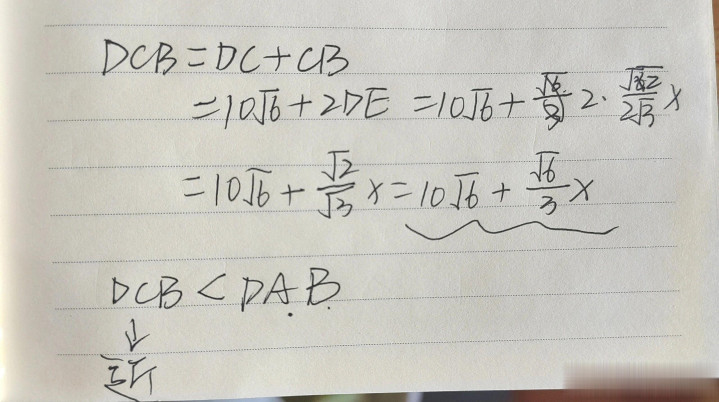 DCB = DC + CB
= 10√6 + 2DE = 10√6 + 2 · √2/2√3 x
= 10√6 + √2/√3 x = 10√6 + √6/3 x
DCB < DAB
↓